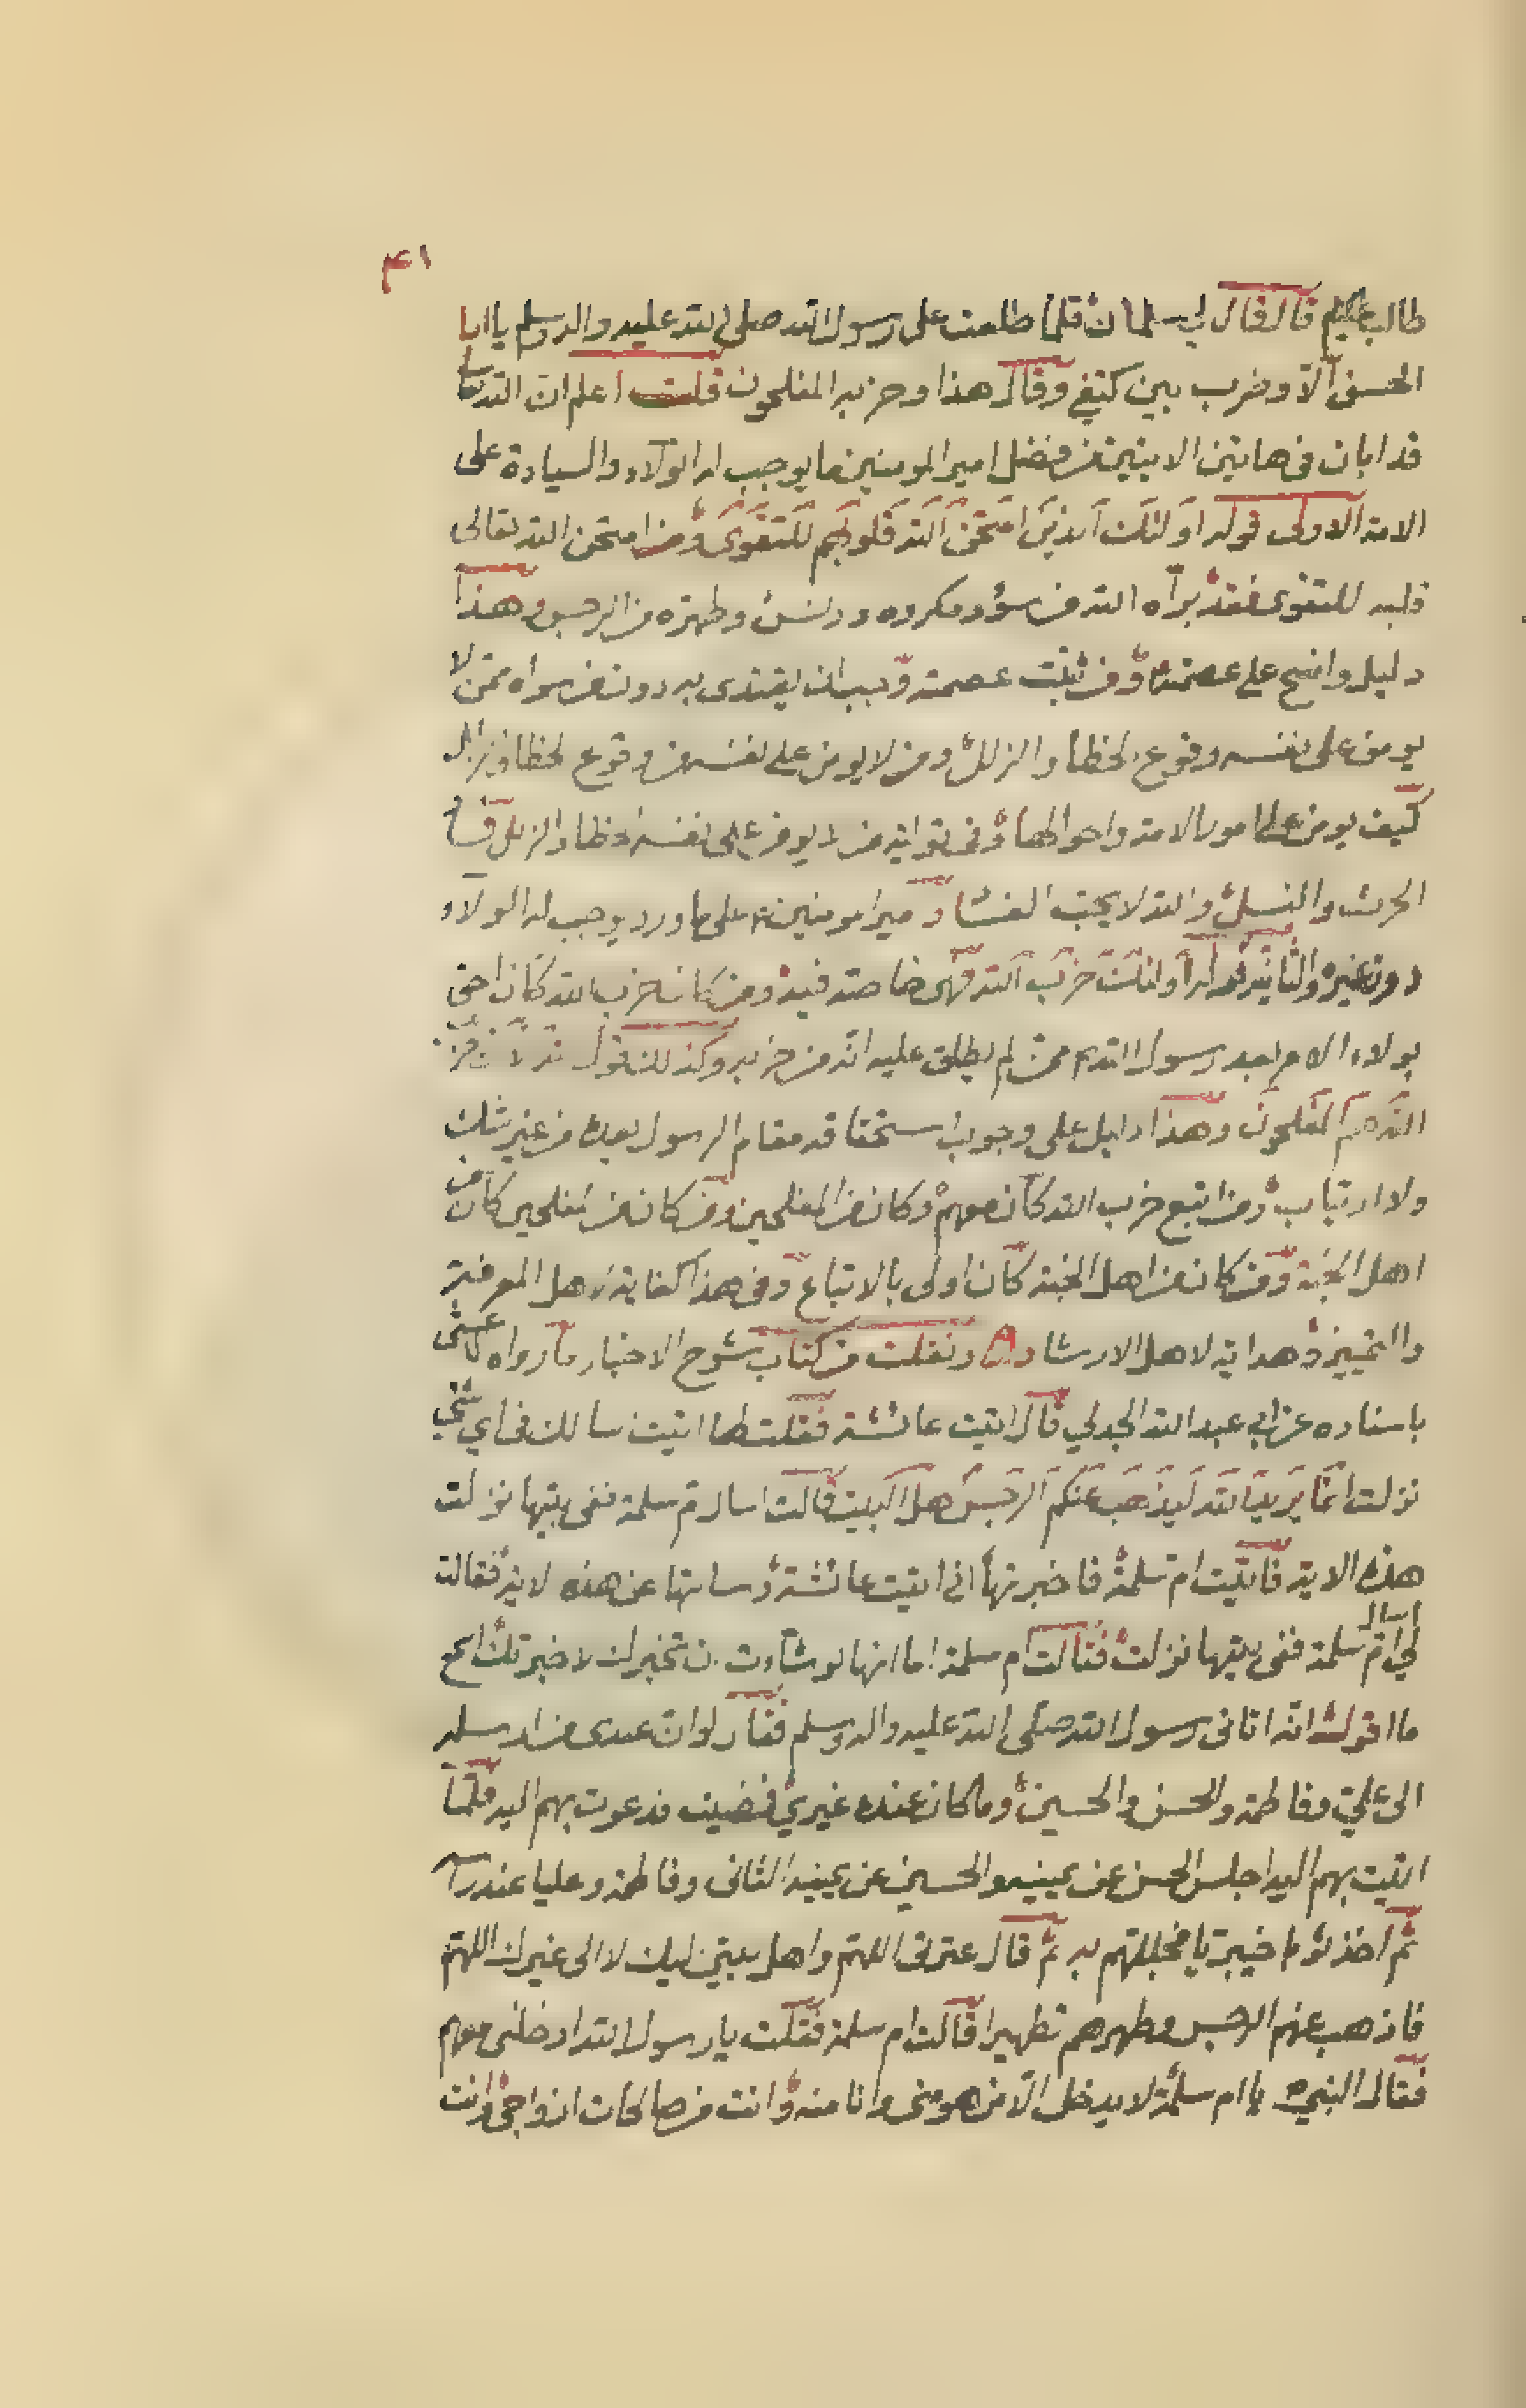 ٤١
طالب عليهم قال قال لي سلمان قلما طلعت على رسول الله صلى الله عليه واله وسلم يا ابا
الحسن الا وضرب بين كتفي وقال هذا وحزبه المفلحون قلت اعلم ان الله تعالى
قد ابان في هاتين الايتين من فضل امير المومنين ما يوجب له الولاء والسيادة على
الامة الاولى قوله اولئك الذين امتحن الله قلوبهم للتقوى ومن امتحن الله تعالى
قلبه للتقوى فقد برأه الله من سوء ومكروه ودنس وطهره من الرجس وهذا
دليل واضح على عصمته ومن ثبتت عصمته وجب ان يقتدى به دون من سواه ممن لا
يومن على نفسه وقوع الخطا والزلل ومن لا يومن على نفسه من وقوع الخطا والزلل
كيف يومن على امور الامة واحوالها وفي تولية من لا يومن على نفسه الخطا والزلل فساد
الحرث والنسل والله لا يحب الفساد وامير المومنين على ما ورد يوجب له الولاء
دون غيره والثانية قوله اولئك حزب الله فهي خاصة فيه ومن كان حزب الله كان احق
بولاء الامر بعد رسول الله ممن لم يطلق عليه انه من حزبه وكذلك قوله الا ان حزب
الله هم المفلحون وهذا دليل على وجوب استحقاقه مقام الرسول بعده من غير شك
ولا ارتياب ومن اتبع حزب الله كان معهم وكان من المفلحين ومن كان من المفلحين كان من
اهل الجنة ومن كان من اهل الجنة كان اولى بالاتباع وفي هذا كفاية لاهل المعرفة
والتمييز وهداية لاهل الارشاد ونقلت من كتاب شرح الاخبار ما رواه
باسناده عن ابي عبد الله الجدلي قال اتيت عائشة فقلت لها اتيت سالك في اي شي
نزلت انما يريد الله ليذهب عنكم الرجس اهل البيت قالت اسال ام سلمة ففي بيتها نزلت
هذه الاية فاتيت ام سلمة فاخبرتها اني اتيت عائشة وسالتها عن هذه الاية فقالت
لي اسال ام سلمة ففي بيتها نزلت فقالت ام سلمة اما انها لو شاءت ان تخبرك لاخبرتك اسمع
ما اقول انه اتاني رسول الله صلى الله عليه واله وسلم فقال لو ان عندي من ارسله
الى علي وفاطمة والحسن والحسين وما كان عنده غيري فمضيت فدعوت بهم اليه فلما
اتيت بهم اليه اجلس الحسن عن يمينه والحسين عن يمينه الثاني وفاطمة وعليا عند راسه
ثم اخذ ثوبا خيبريا فجللهم به ثم قال عترتي اللهم واهل بيتي اليك لا الى غيرك اللهم
فاذهب عنهم الرجس وطهرهم تطهيرا قالت ام سلمة فقلت يا رسول الله ادخلني معهم
فقال النبي يا ام سلمة لا يدخل الا من هو مني وانا منه وانت من صالحات ازواجي وانت